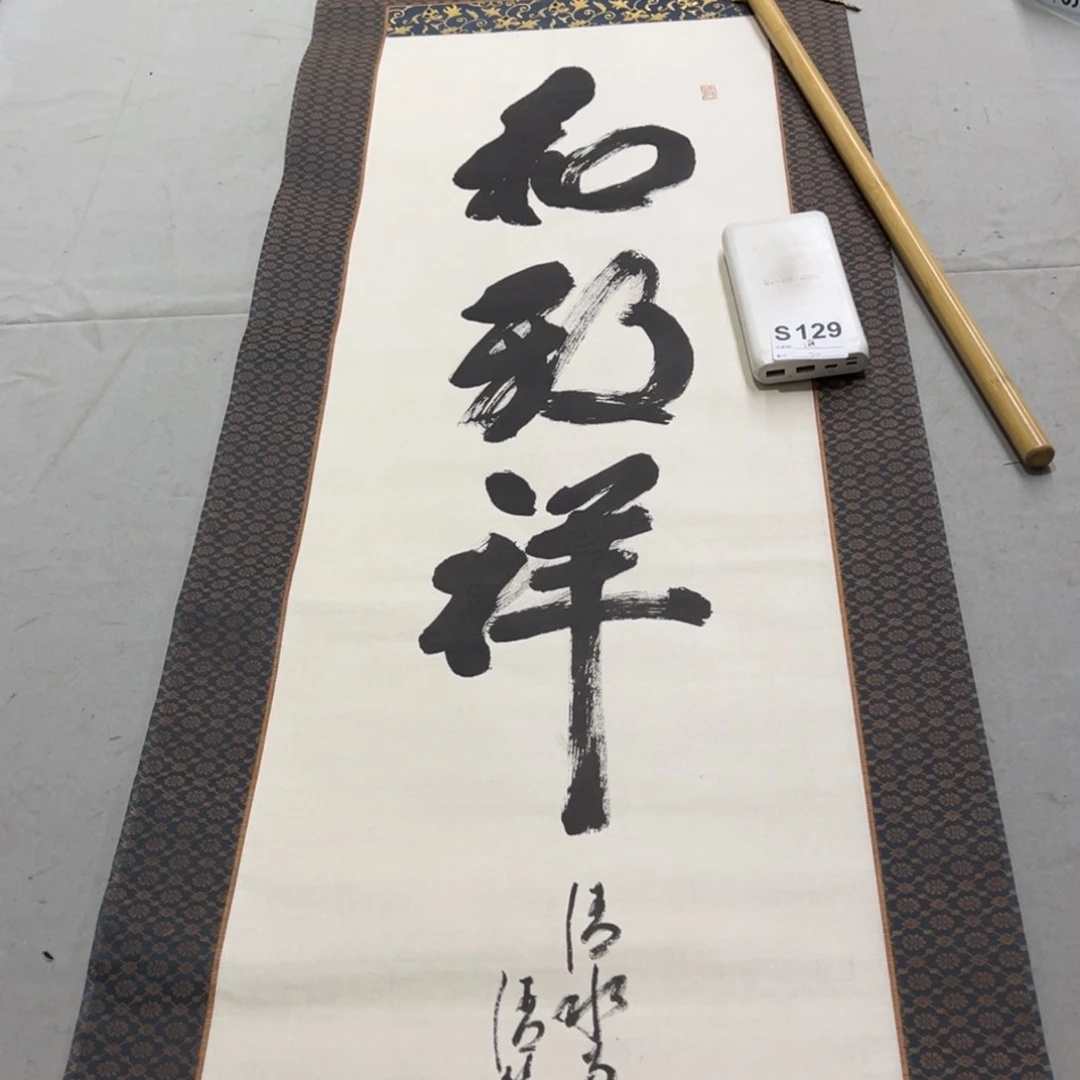 和致祥
清水
清
S129